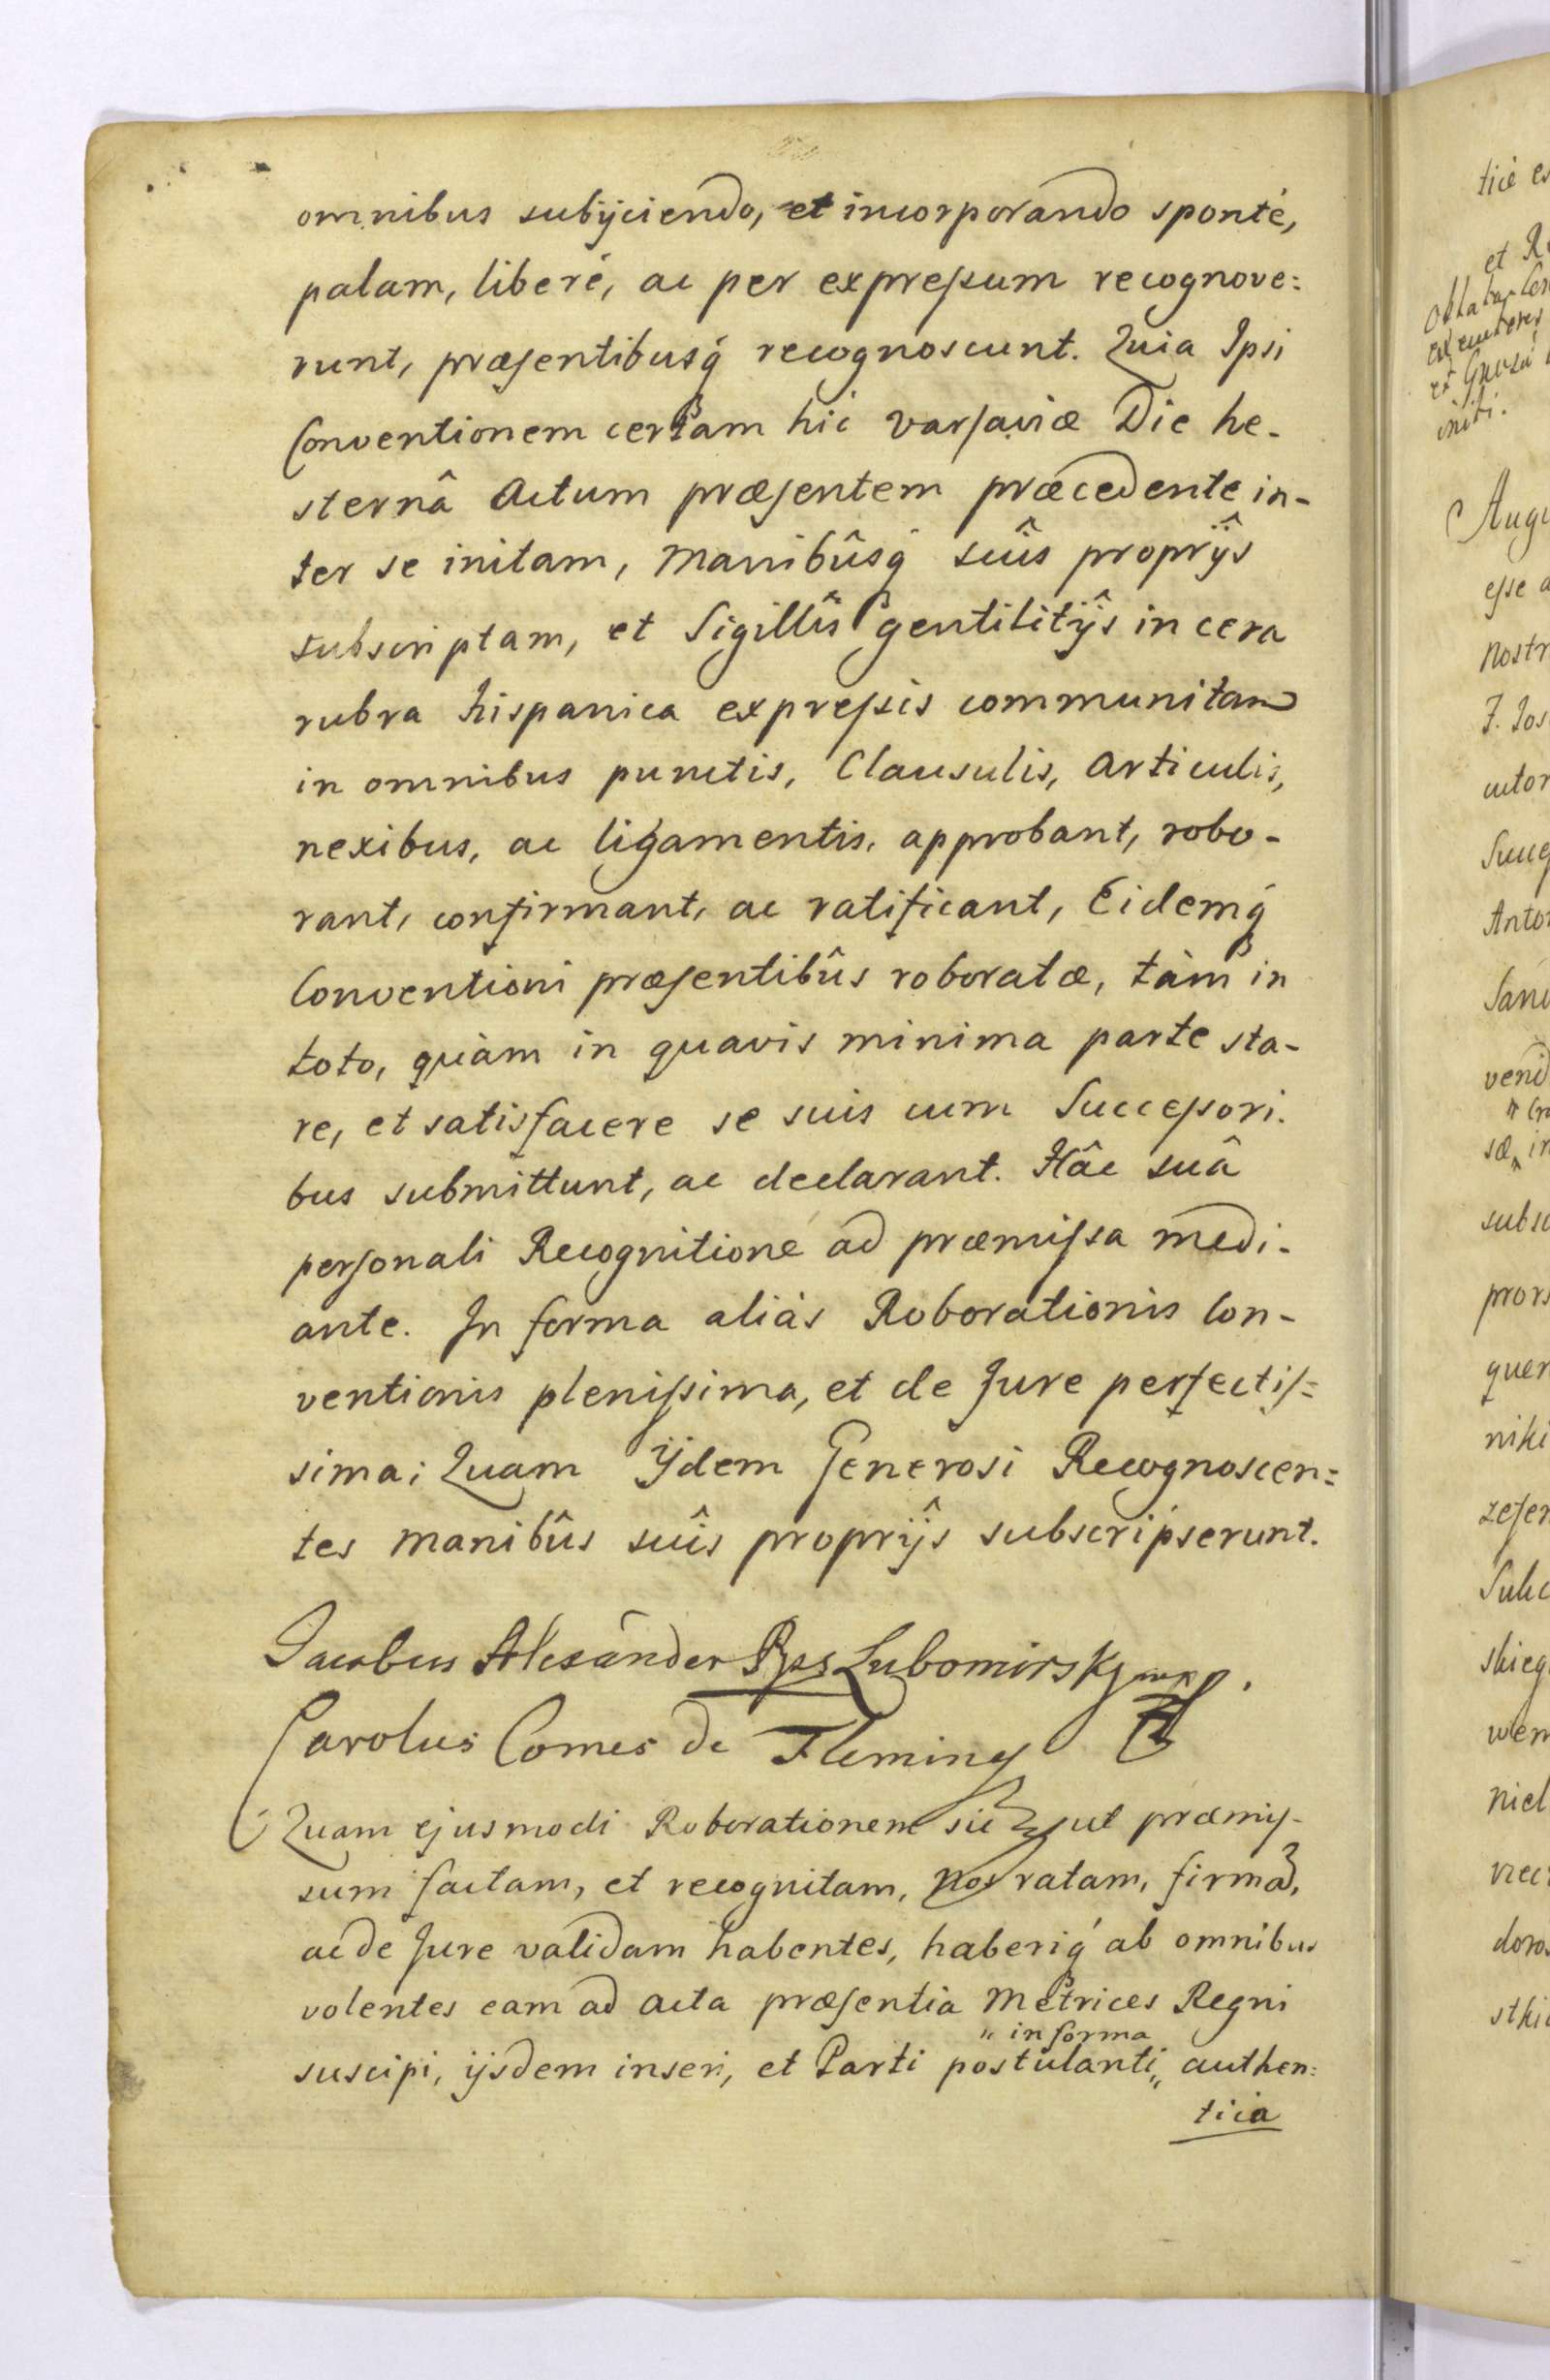 omnibus subijciendo, et incorporando sponté,
palam, liberé, ac per expressum recognove=
runt, præsentibusq́ recognoscunt. Quia Ipsi
Conventionem certam hic Varsaviæ Die he-
sternâ Actum præsentem præcedente in-
ter se initam, Manibûsq́ suîs proprijs̑
subscriptam, et Sigillîs gentilitijs̑ in cera
rubra hispanica expressis communitam
in omnibus punctis, Clausulis, Articulis,
nexibus, ac ligamentis, approbant, robo-
rant, confirmant, ac ratificant, Eidemq́
Conventioni præsentibûs roboratæ, tàm in
toto, quàm in quavis minima parte sta-
re, et satisfacere se suis cum Successori-
bus submittunt, ac declarant. Hâc suâ
personali Recognitione ad præmissa medi-
ante. In forma aliàs Roborationis Con-
ventionis plenissima, et de Jure perfectis=
sima; Quam Ijdem Generosi Recognoscen=
tes manibûs suîs proprijs̑ subscripserunt.
Jacobus Alexander Xże Lubomirsky mpp.
Carolus Comes de Fleming
Quam ejusmodi Roborationem sic ut præmis-
sum factam, et recognitam, Nos ratam, firmã,
ac de Jure validam habentes, haberiq́ ab omnibus
volentes eam ad acta præsentia Metrices Regni
" in forma
suscipi, ijsdem inseri, et Parti postulanti " authen=
tica
tic
et R
Oblata
et Gnosa
initi.
Augu
esse a
nostr
J. Jos
cutor
Succ
Anto
Sand
vend
sæ, in
subsc
prors
quen
niki
zesen
Sulic
skieg
wem
niel
doro
stki